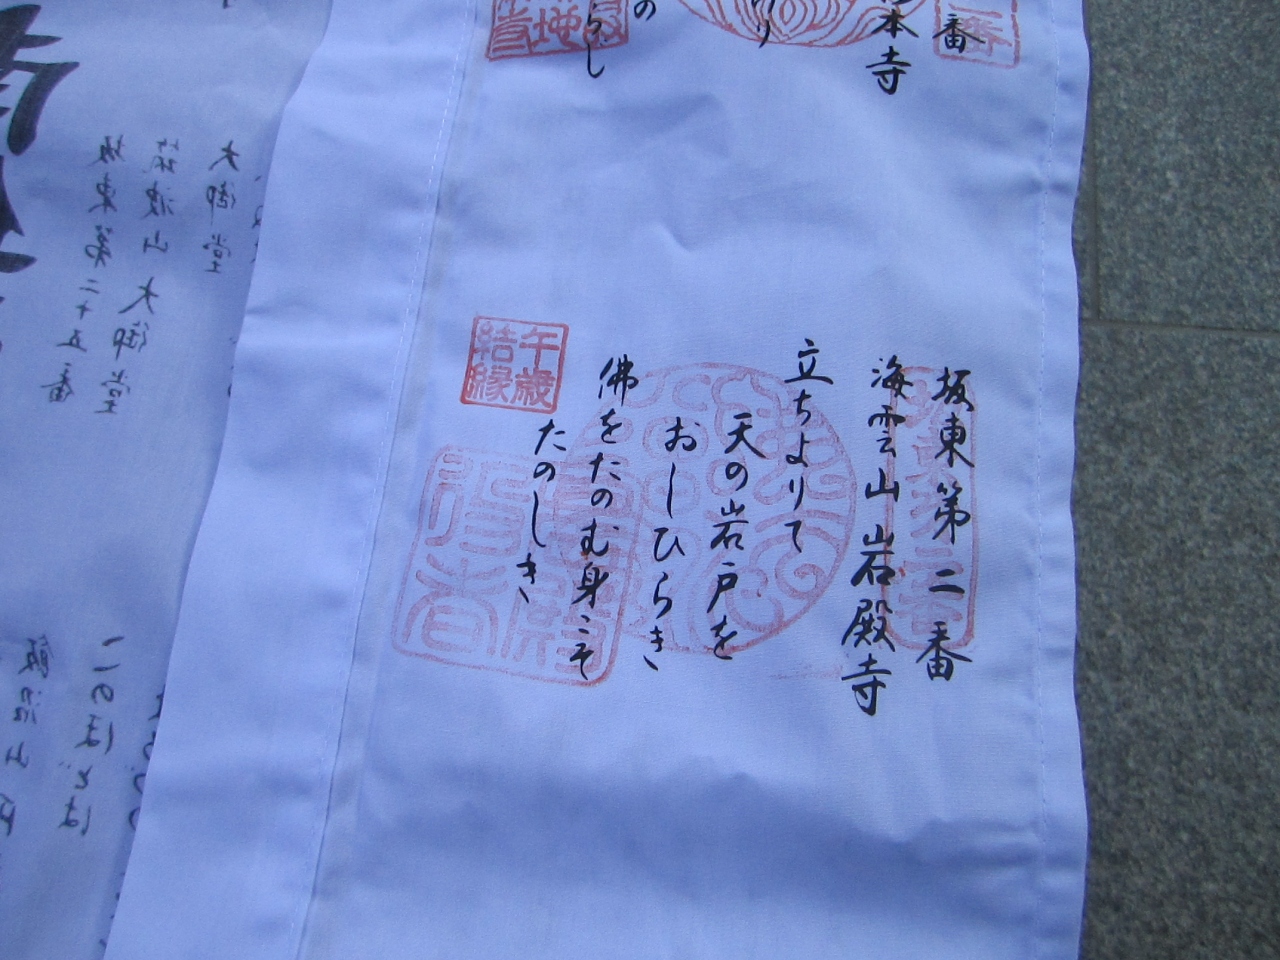 番
本寺
り
の
らし
坂東第二番
海雲山岩殿寺
立ちよりて
天の岩戸を
おしひらき
佛をたのむ身こそ
たのしき
午歳
結縁
大御堂
筑波山大御堂
坂東第二十五番
このほどは
飯沼山